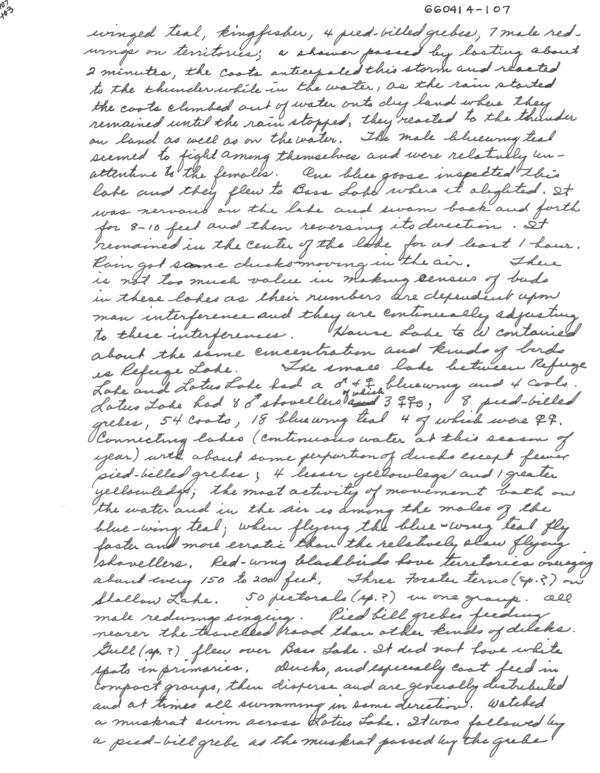 660414-107
winged teal, kingfisher, 4 pied-billed grebes, 7 male red-
wings on territories; a shower passed by lasting about
2 minutes, the coots anticipated this storm and reacted
to the thunder while in the water, as the rain started
the coots climbed out of water onto dry land where they
remained until the rain stopped, they reacted to the thunder
on land as well as on the water. The male bluewing teal
seemed to fight among themselves and were relatively un-
attentive to the females. One blue goose inspected this
lake and they flew to Bass Lake where it alighted. It
was nervous on the lake and swam back and forth
for 8-10 feet and then reversing its direction. It
remained in the center of the lake for at least 1 hour.
Rain got some ducks moving in the air. There
is not too much value in making census of birds
in these lakes as their numbers are dependent upon
man interference and they are continually adjusting
to these interferences. House Lake to W contained
about the same concentration and kinds of birds
as Refuge Lake. The small lake between Refuge
Lake and Lotus Lake had a ♂ + ♀ bluewing and 4 coots.
Lotus Lake had 8 ♂ shovellers of which 3 ♀♀s, 8 pied-billed
grebes, 54 coots, 18 bluewing teal 4 of which were ♀♀.
Connecting lakes (continuous water at this season of
year) with about same perportion of ducks except fewer
pied-billed grebes; 4 lesser yellowlegs and 1 greater
yellowlegs; the most activity of movement both on
the water and in the air is among the males of the
blue-wing teal; when flying the blue-wing teal fly
faster and more erratic than the relatively slow flying
shovellers. Red-wing blackbirds have territories averaging
about every 150 to 200 feet. Three Forster terns (sp.?) on
Shallow Lake. 50 pectorals (sp.?) in one group. All
male redwings singing. Pied bill grebes feeding
nearer the travelled road than other kinds of ducks.
Gull (sp.?) flew over Bass Lake. It did not have white
spots in primaries. Ducks, and especially coot feed in
compact groups, then disperse and are generally distributed
and at times all swimming in same direction. Watched
a muskrat swim across Lotus Lake. It was followed by
a pied-bill grebe as the muskrat passed by the grebe